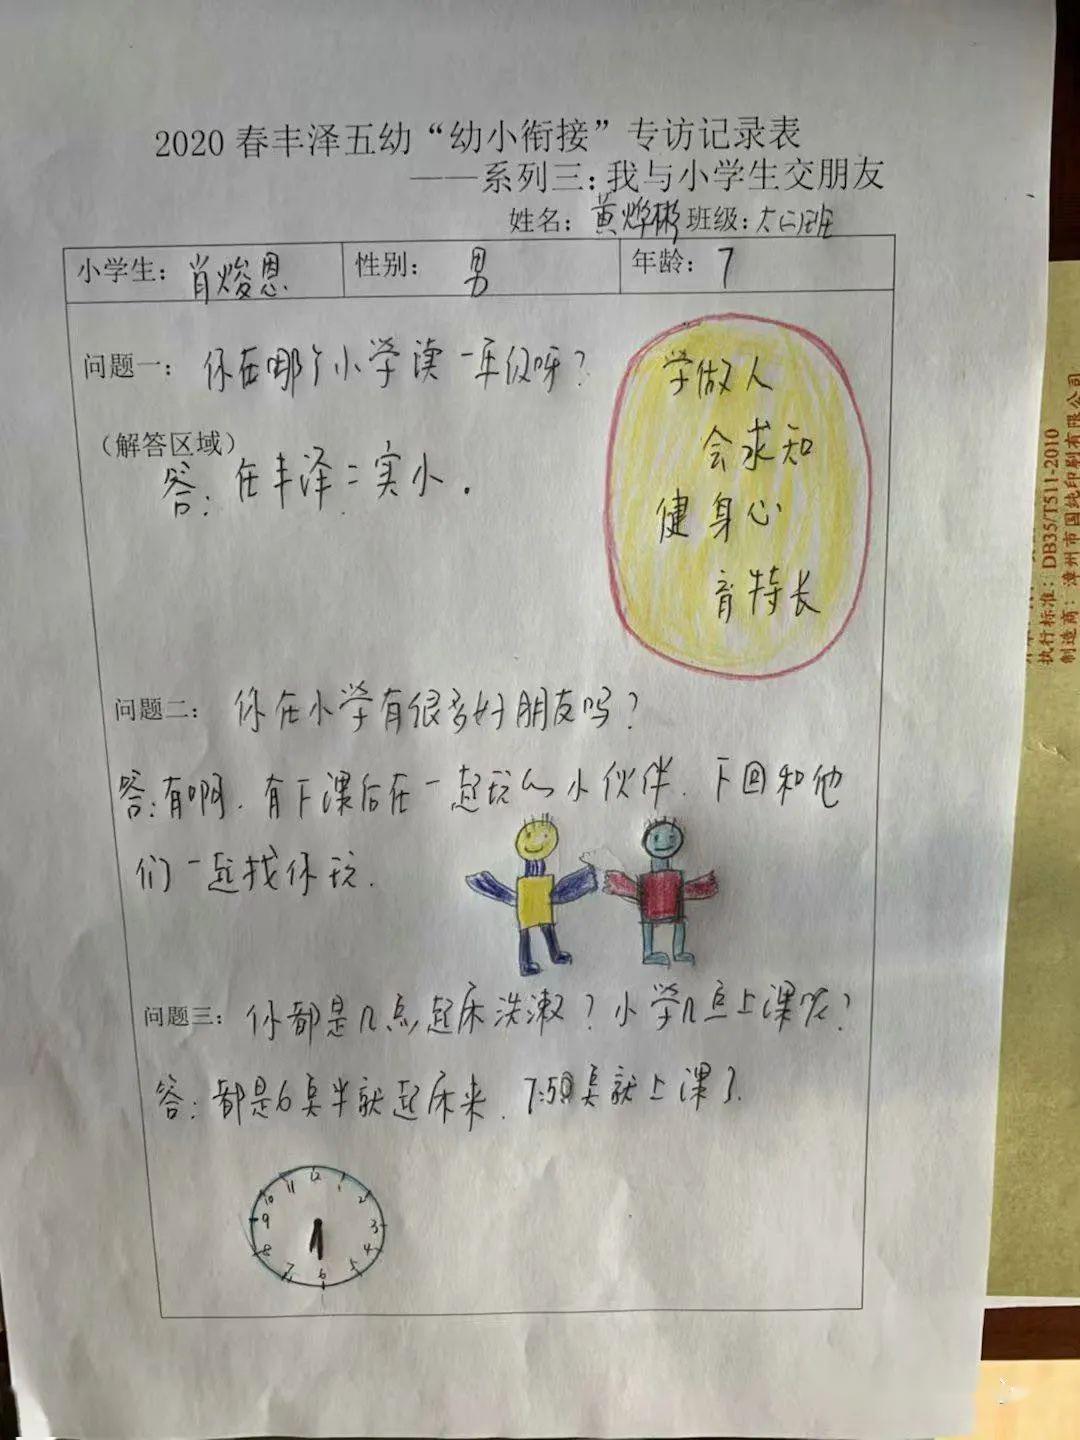 2020 春丰泽五幼“幼小衔接”专访记录表
——系列三：我与小学生交朋友
姓名：黄烨彬 班级：大(二)班
小学生：肖焌恩 性别：男 年龄：7
问题一：你在哪个小学读一年级呀？
（解答区域）
答：在丰泽二实小.
学做人
会求知
健身心
育特长
问题二：你在小学有很多好朋友吗？
答：有啊.有下课后在一起玩的小伙伴.下回和他
们一起找你玩.
问题三：你都是几点起床洗漱？小学几点上课呢？
答：都是6点半就起床来.7:50点就上课了.
12
1
2
3
4
5
6
7
8
9
10
11
执行标准：DB35/T511-2010
制造商：漳州市国纯印刷有限公司